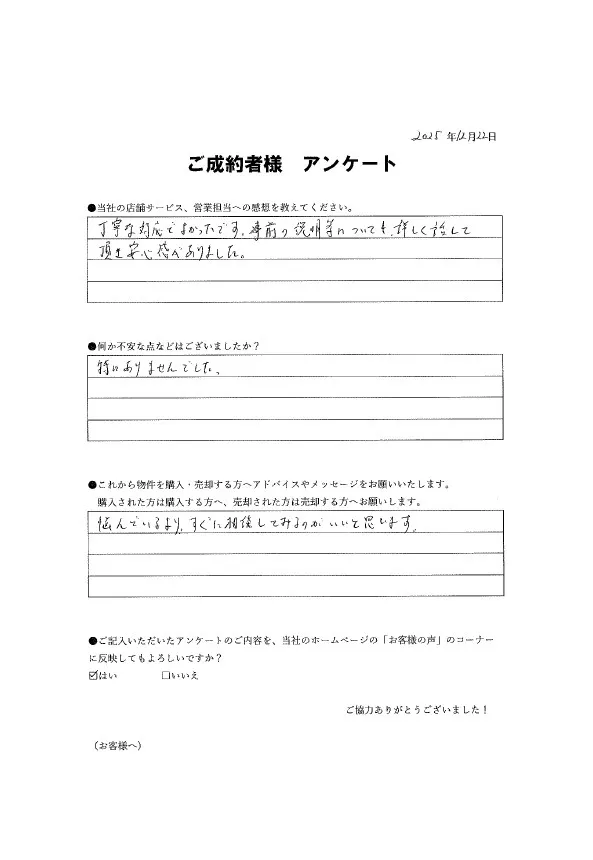 2025年12月22日
ご成約者様　アンケート
●当社の店舗サービス、営業担当への感想を教えてください。
丁寧な対応でよかったです。事前の説明等についても、詳しく話して
頂き安心感がありました。
●何か不安な点などはございましたか？
特にありませんでした。
●これから物件を購入・売却する方へアドバイスやメッセージをお願いいたします。
購入された方は購入する方へ、売却された方は売却する方へお願いします。
悩んでいるより、すぐに相談してみるのがいいと思います。
●ご記入いただいたアンケートのご内容を、当社のホームページの「お客様の声」のコーナー
に反映してもよろしいですか？
☑はい　　　□いいえ
ご協力ありがとうございました！
（お客様へ）